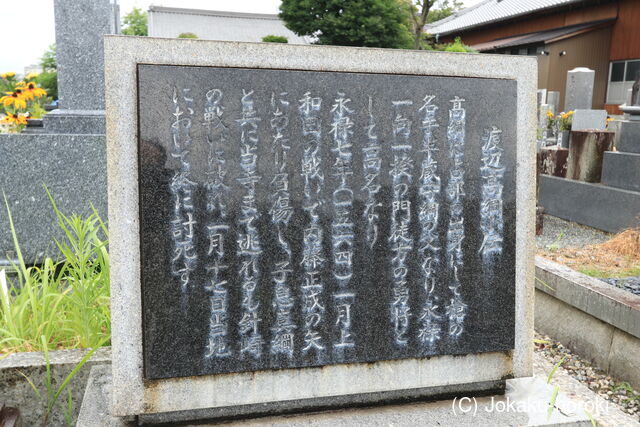 渡辺高綱
高綱は占部の出身にして槍の
名手半蔵守綱の父なり、永禄
一向一揆の門徒方の勇将と
して高名なり
永禄七年(一五六四)一月上
和田の戦いで内藤正成の矢
にあたり負傷し、子息真綱
と共に当寺まで逃れるも針崎
の戦いに敗れ一月十七日当地
において終に討死す
(C) Jokaku Horoki